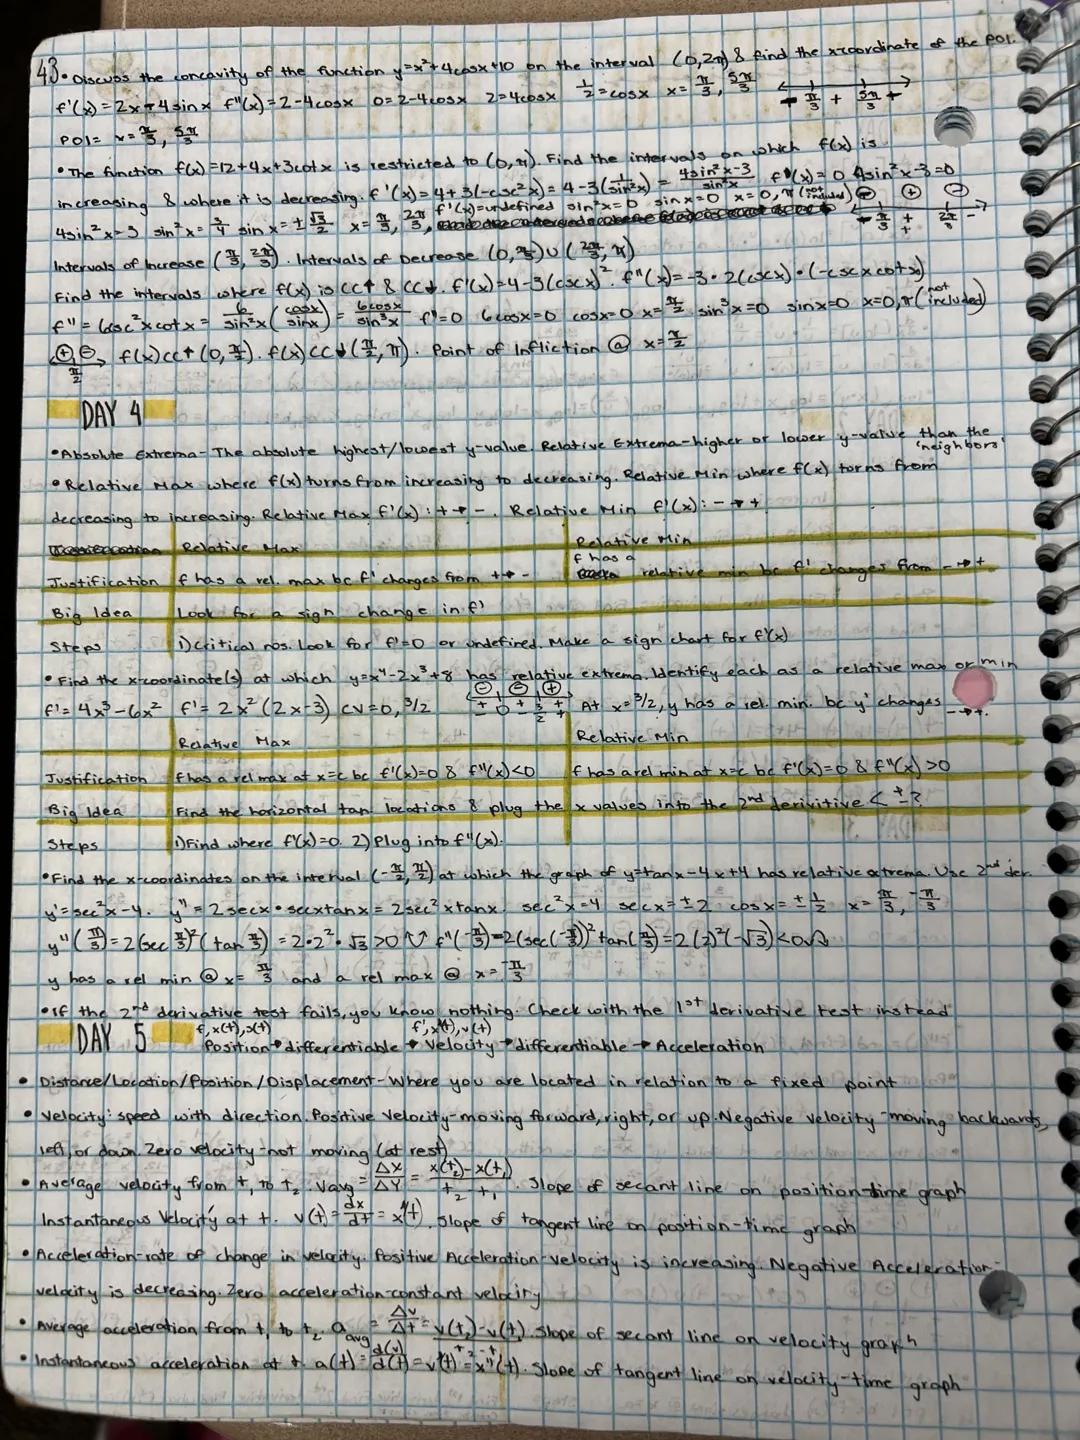 43. • Discuss the concavity of the function y=x²+4cosx+10 on the interval (0,2π) & find the x-coordinate of the POI.
f'(x)=2x-4sinx f''(x)=2-4cosx 0=2-4cosx 2=4cosx 1/2=cosx x=π/3, 5π/3 - π/3 + 5π/3 -
POI= x=π/3, 5π/3
• The function f(x)=12+4x+3cotx is restricted to (0,π). Find the intervals on which f(x) is
increasing & where it is decreasing. f'(x)=4+3(-csc²x)=4-3(1/sin²x)= 4sin²x-3/sin²x f'(x)=0 4sin²x-3=0
4sin²x=3 sin²x=3/4 sinx=±√3/2 x=π/3, 2π/3, f'(x)=undefined sin²x=0 sinx=0 x=0,π (not included) - + - - π/3 + + 2π/3 -
Intervals of Increase (π/3, 2π/3). Intervals of Decrease (0,π/3)∪(2π/3,π)
Find the intervals where f(x) is CC↑ & CC↓. f'(x)=4-3(cscx)². f''(x)=-3·2(cscx)·(-cscxcotx)
f''=6csc²xcotx= 6/sin²x(cosx/sinx)= 6cosx/sin³x f''=0 6cosx=0 cosx=0 x=π/2 sin³x=0 sinx=0 x=0,π(not included)
+ - π/2 f(x)CC↑(0,π/2). f(x)CC↓(π/2,π). Point of Infliction @ x=π/2
DAY 4
• Absolute Extrema- The absolute highest/lowest y-value. Relative Extrema-higher or lower y-value than the 'neighbors'
• Relative Max where f(x) turns from increasing to decreasing. Relative Min where f(x) turns from
decreasing to increasing. Relative Max f'(x): +→-. Relative Min f'(x): -→+
Relative Max Relative Min
Justification f has a rel. max bc f' changes from +→- f has a relative min bc f' changes from -→+
Big Idea Look for a sign change in f'
Steps 1) Critical nos. Look for f'=0 or undefined. Make a sign chart for f'(x)
• Find the x-coordinate(s) at which y=x⁴-2x³+8 has relative extrema. Identify each as a relative max or min
f'=4x³-6x² f'=2x²(2x-3) CV=0, 3/2 - - + At x=3/2, y has a rel. min. bc y' changes -→+.
Relative Max Relative Min
Justification f has a rel max at x=c bc f'(x)=0 & f''(x)<0 f has a rel min at x=c bc f'(x)=0 & f''(x)>0
Big Idea Find the horizontal tan locations & plug the x values into the 2nd derivitive < + - ?
Steps 1) Find where f'(x)=0. 2) Plug into f''(x).
• Find the x-coordinates on the interval (-π/2, π/2) at which the graph of y=tanx-4x+4 has relative extrema. Use 2nd der.
y'=sec²x-4. y''=2secx·secxtanx=2sec²xtanx. sec²x=4 secx=±2 cosx=±1/2 x=π/3, -π/3
y''(π/3)=2(sec π/3)²(tan π/3)=2·2²·√3>0 f''(-π/3)=2(sec(-π/3))²tan(π/3)=2(2)²(-√3)<0
y has a rel min @ x=π/3 and a rel max @ x=-π/3
• If the 2nd derivative test fails, you know nothing. Check with the 1st derivative test instead
DAY 5 f, x(t), s(t) f', x'(t), v(t)
Position→differentiable→Velocity→differentiable→Acceleration
• Distance/Location/Position/Displacement-Where you are located in relation to a fixed point
• Velocity: speed with direction. Positive Velocity-moving forward, right, or up. Negative velocity-moving backwards,
left, or down. Zero velocity-not moving (at rest)
• Average velocity from t₁ to t₂. Vavg=Δx/ΔY=x(t₂)-x(t₁)/t₂-t₁. Slope of secant line on position-time graph
Instantaneous Velocity at t. v(t)=dx/dt=x'(t). Slope of tangent line on position-time graph
• Acceleration-rate of change in velocity. Positive Acceleration-velocity is increasing. Negative Acceleration-
velocity is decreasing. Zero acceleration-constant velocity
• Average acceleration from t₁ to t₂ aavg=Δv/Δt=v(t₂)-v(t₁)/t₂-t₁. Slope of secant line on velocity graph
• Instantaneous acceleration at t. a(t)=d(v)/d(t)=v'(t)=x''(t). Slope of tangent line on velocity-time graph